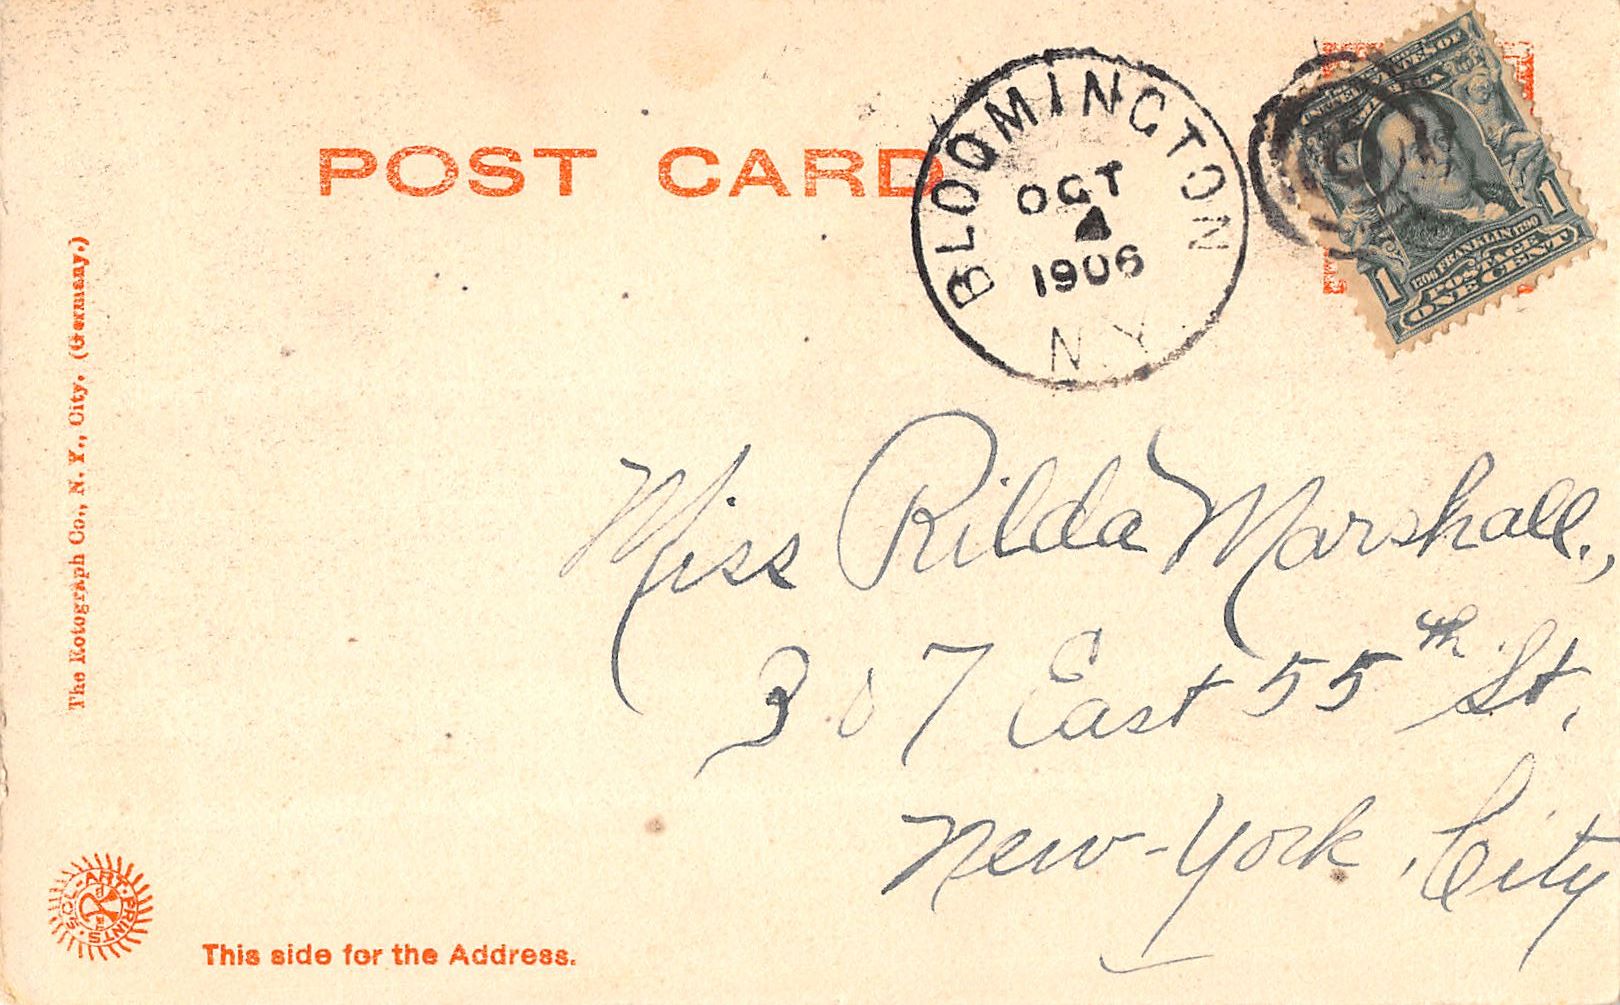 POST CARD
BLOOMINGTON
OCT
4
1906
N.Y.
1
1
1706 FRANKLIN 1790
POSTAGE
ONE CENT
Miss Rilda Marshall.,
307 East 55th St,
New-York, City
The Rotograph Co., N. Y., City. (Germany.)
SOL ART PRINTS
This side for the Address.